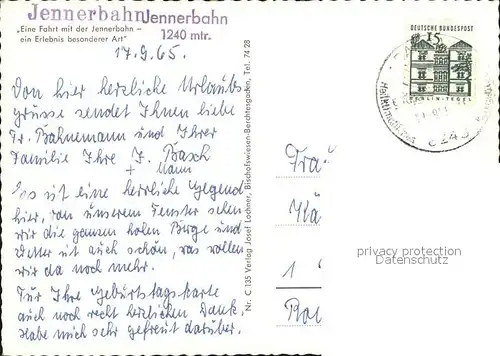 Jennerbahn Jennerbahn
1240 mtr.
„Eine Fahrt mit der Jennerbahn –
ein Erlebnis besonderer Art"
17.9.65.
Von hier herzliche Urlaubs
grüsse sendet Ihnen liebe
Fr. Bahnemann und Ihrer
Familie Ihre J. Basch
+ Mann
Es ist eine herrliche Gegend
hier, von unserem Fenster sehen
wir die ganzen hohen Berge und
Wetter ist auch schön, was wollen
wir da noch mehr.
Für Ihre Geburtstagskarte
auch noch recht herzlichen Dank,
Habe mich sehr gefreut darüber.
Nr. C 135 Verlag Josef Lochner, Bischofswiesen-Berchtesgaden, Tel. 74 28
DEUTSCHE BUNDESPOST
15
BERLIN-TEGEL
Heilklimatischer
8243
Fra
1
privacy protection
Datenschutz